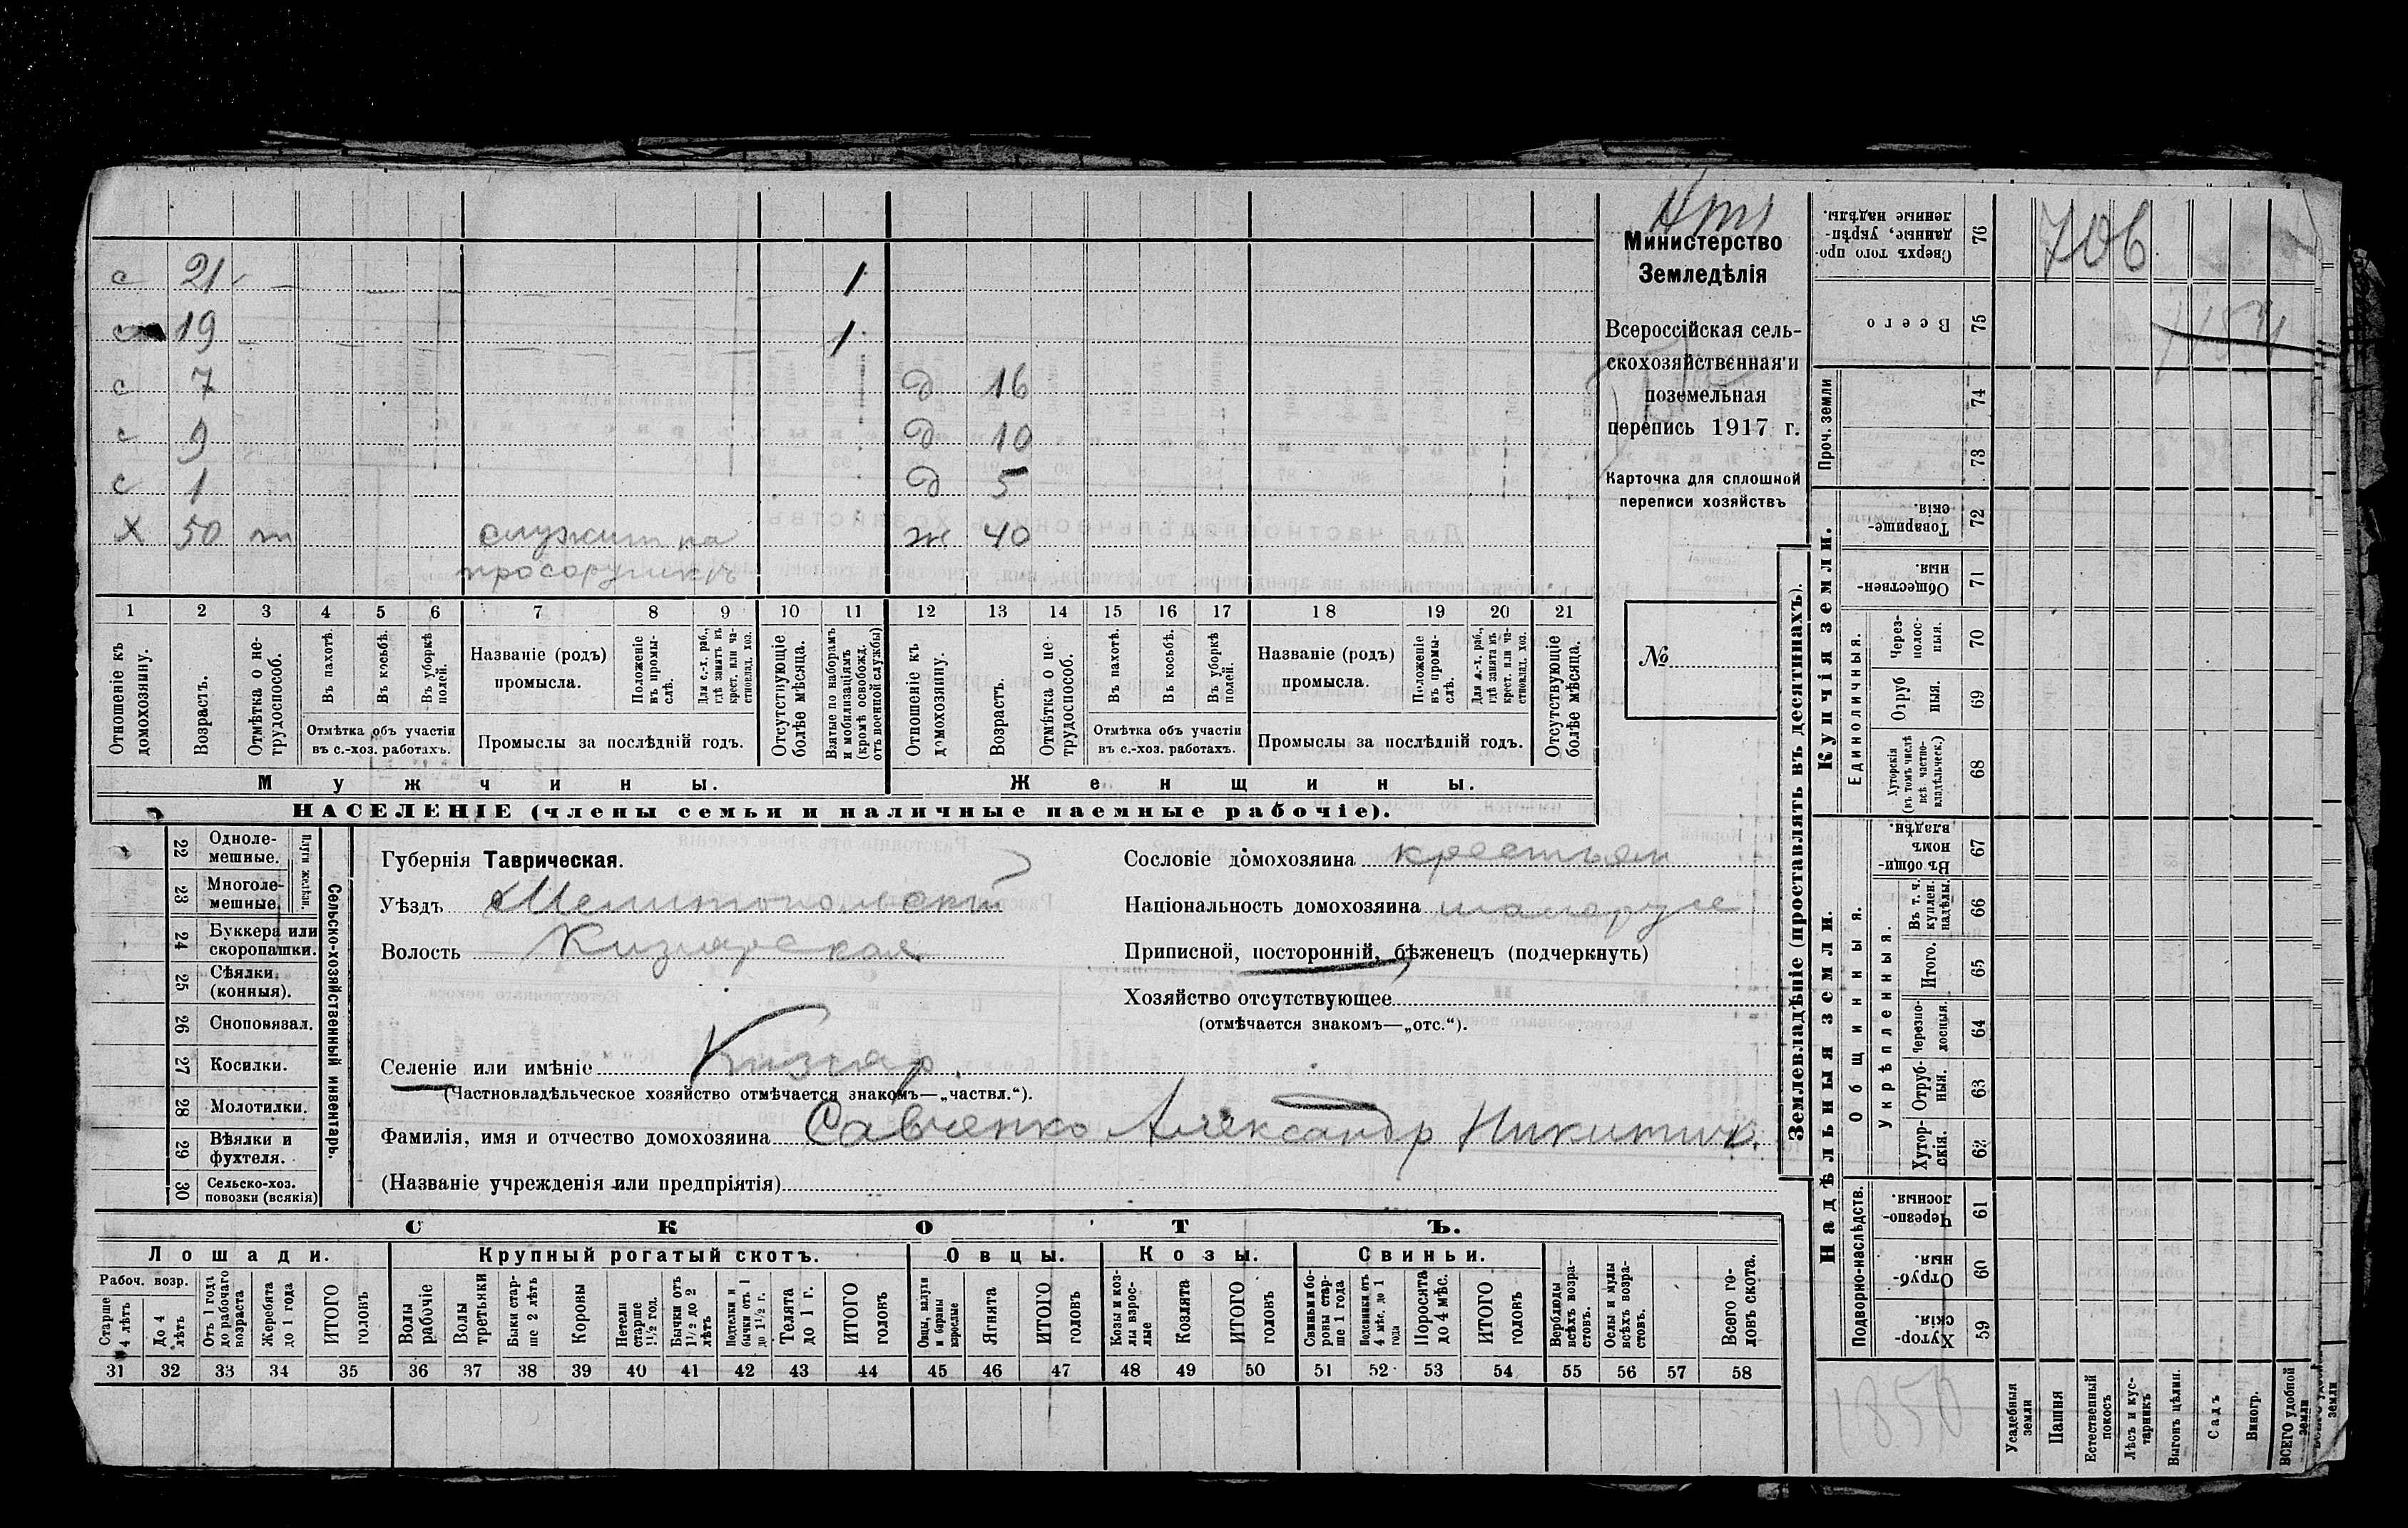 Министерство
Земледѣлія
Всероссійская сель-
скохозяйственная и
поземельная
перепись 1917 г.
Карточка для сплошной
переписи хозяйствъ
№
с 21 1
с 19 1
с 7 д 16
с 9 д 10
с 1 д 5
х 50 служит на ж 40
1 2 3 4 5 6 7 8 9 10 11 12 13 14 15 16 17 18 19 20 21
Отношеніе къ домохозяину.
Возрастъ.
Отмѣтка о не-трудоспособ.
Въ пахотѣ.
Въ косьбѣ.
Въ уборкѣ полей.
Отмѣтка объ участіи
въ с.-хоз. работахъ.
Названіе (родъ)
промысла.
Положеніе въ промы-слѣ.
Для с.-х. раб., гдѣ занятъ въ крест. или ча-стновлад. хоз.
Промыслы за послѣдній годъ.
Отсутствующіе болѣе мѣсяца.
Взятые по наборамъ и мобилизаціямъ (кромѣ освобожд. отъ военной службы)
Отношеніе къ домохозяину.
Возрастъ.
Отмѣтка о не трудоспособ.
Въ пахотѣ.
Въ косьбѣ.
Въ уборкѣ полей.
Отмѣтка объ участіи
въ с.-хоз. работахъ.
Названіе (родъ)
промысла.
Положеніе въ промы-слѣ.
Для с.-х. раб., гдѣ занята въ крест. или ча-стновлад. хоз.
Промыслы за послѣдній годъ.
Отсутствующіе болѣе мѣсяца.
Мужчины. Женщины.
НАСЕЛЕНІЕ (члены семьи и наличные наемные рабочіе).
Сельско-хозяйственный инвентарь.
Плуги желѣзн.
22 Одноле-мешные.
23 Многоле-мешные.
24 Буккера или скоропашки.
25 Сѣялки (конныя).
26 Сноповязал.
27 Косилки.
28 Молотилки.
29 Вѣялки и фухтеля.
30 Сельско-хоз. повозки (всякія)
Губернія Таврическая.
Уѣздъ Мелитопольский
Волость Кизиярская
Селеніе или имѣніе Кизияр.
(Частновладѣльческое хозяйство отмѣчается знакомъ—„частвл.“).
Фамилія, имя и отчество домохозяина Савченко Александр Никитич.
(Названіе учрежденія или предпріятія)
Сословіе домохозяина крестьян
Національность домохозяина малорусс
Приписной, посторонній, бѣженецъ (подчеркнуть)
Хозяйство отсутствующее
(отмѣчается знакомъ—„отс.“).
СКОТЪ.
Лошади. Крупный рогатый скотъ. Овцы. Козы. Свиньи.
Рабоч. возр.
Старше 4 лѣтъ
До 4 лѣтъ
Отъ 1 года до рабочаго возраста
Жеребята до 1 года
ИТОГО головъ
Волы рабочіе
Волы третьяки
Быки стар-ше 2 лѣтъ
Коровы
Нетели старше 1½ год.
Бычки отъ 1½ до 2 лѣтъ
Подтелки и бычки отъ 1 до 1½ г.
Телята до 1 г.
ИТОГО головъ
Овцы, валухи и бараны взрослые
Ягнята
ИТОГО головъ
Козы и коз-лы взрос-лые
Козлята
ИТОГО головъ
Свиньи и бо-ровы стар-ше 1 года
Подсвинки отъ 4 мѣс. до 1 года
Поросята до 4 мѣс.
ИТОГО головъ
Верблюды всѣхъ возра-стовъ.
Ослы и мулы всѣхъ возра-стовъ.
Всего го-ловъ скота.
31 32 33 34 35 36 37 38 39 40 41 42 43 44 45 46 47 48 49 50 51 52 53 54 55 56 57 58
Землевладѣніе (проставлять въ десятинахъ).
Надѣльныя земли.
Подворно-наслѣдств.
Хутор-скія. 59
Отруб-ныя. 60
Черезпо-лосныя. 61
Общинныя.
Укрѣпленныя.
Хутор-скія. 62
Отруб-ныя. 63
Черезпо-лосныя. 64
Итого. 65
Въ т. ч. куплен. надѣлы. 66
Въ общин-номъ владѣн. 67
Купчія земли.
Единоличныя.
Хуторскія (въ томъ числѣ всѣ частно-владѣльческ.) 68
Отруб ныя. 69
Через-полос-ныя. 70
Обществен-ныя. 71
Товарище-скія. 72
Проч. земли
73
74
Всего 75
Сверхъ того про-данные, укрѣп-ленные надѣлы. 76
706
1850
Усадебныя земли
Пашня
Естественный покосъ
Лѣсъ и кус-тарникъ
Выгонъ цѣлин.
Садъ
Виногр.
ВСЕГО удобной земли